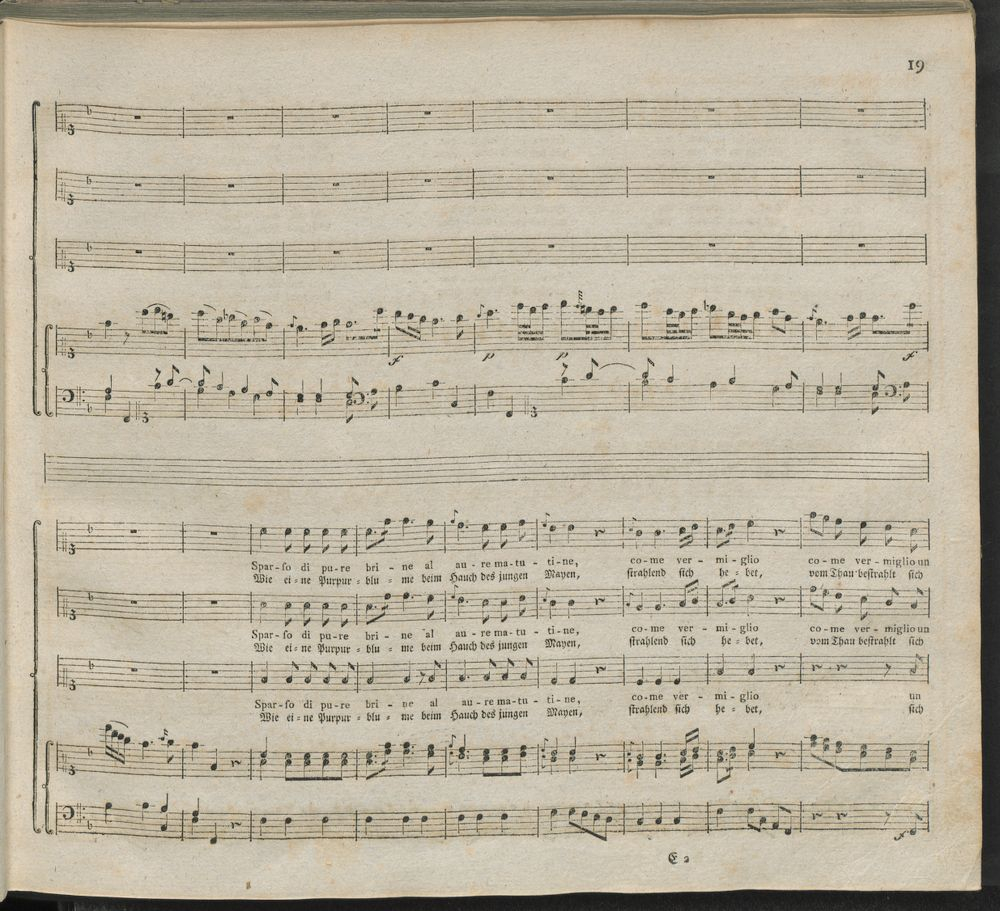 19
f p p f
Spar-so di pu-re bri - ne al au - re ma-tu - ti-ne, co-me ver - mi-glio co-me ver-miglio un
Wie ei=ne Purpur=blu = me beim Hauch des jungen Mayen, strahlend sich he = bet, vom Thau bestrahlt sich
Spar-so di pu-re bri - ne al au - re ma-tu - ti-ne, co-me ver - mi-glio co-me ver-miglio un
Wie ei=ne Purpur=blu = me beim Hauch des jungen Mayen, strahlend sich he = bet, vom Thau bestrahlt sich
Spar-so di pu-re bri - ne al au - re ma-tu - ti-ne, co-me ver - mi-glio un
Wie ei=ne Purpur=blu = me beim Hauch des jungen Mayen, strahlend sich he = bet, sich
f
E 2